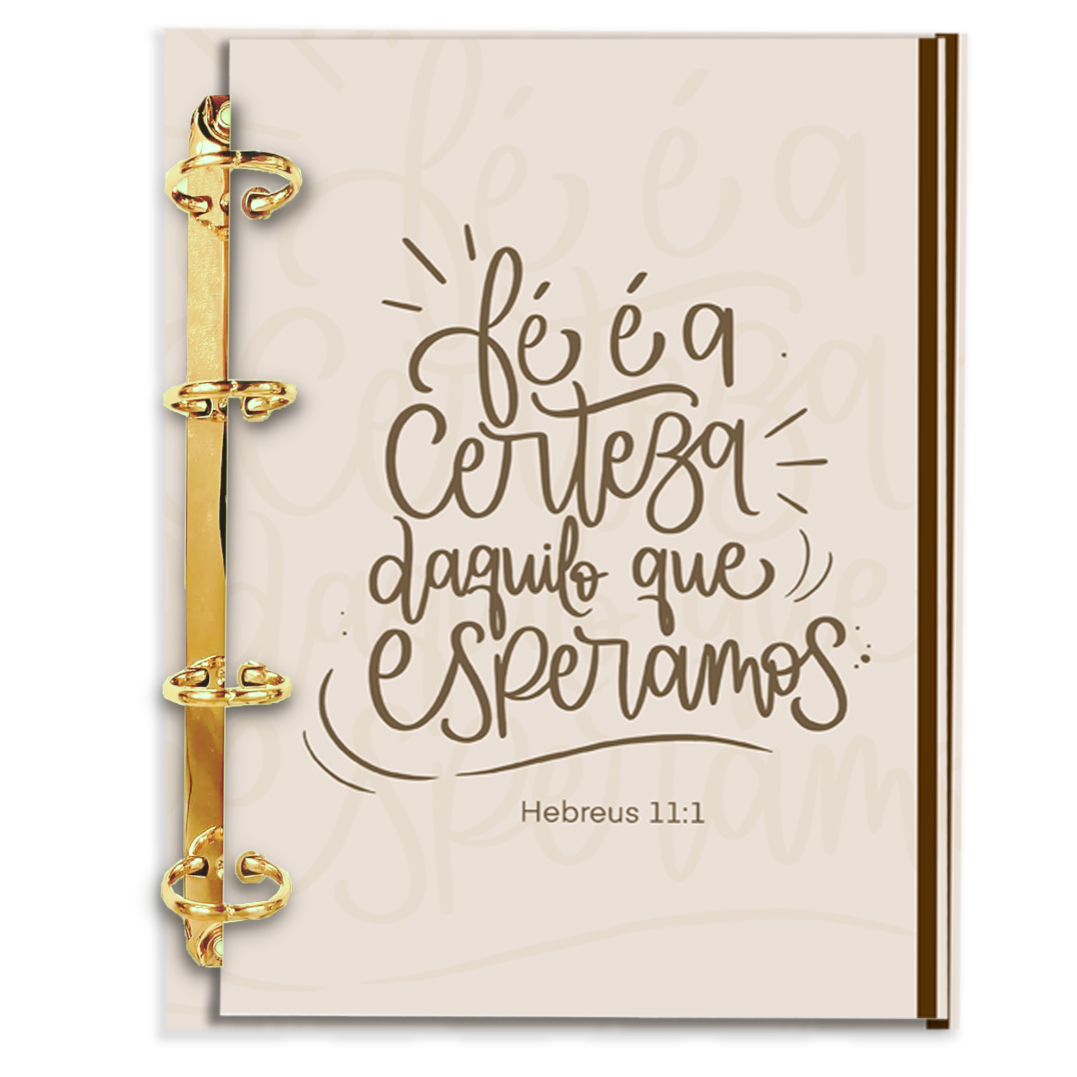 fé é a
Certeza
daquilo que
esperamos
Hebreus 11:1